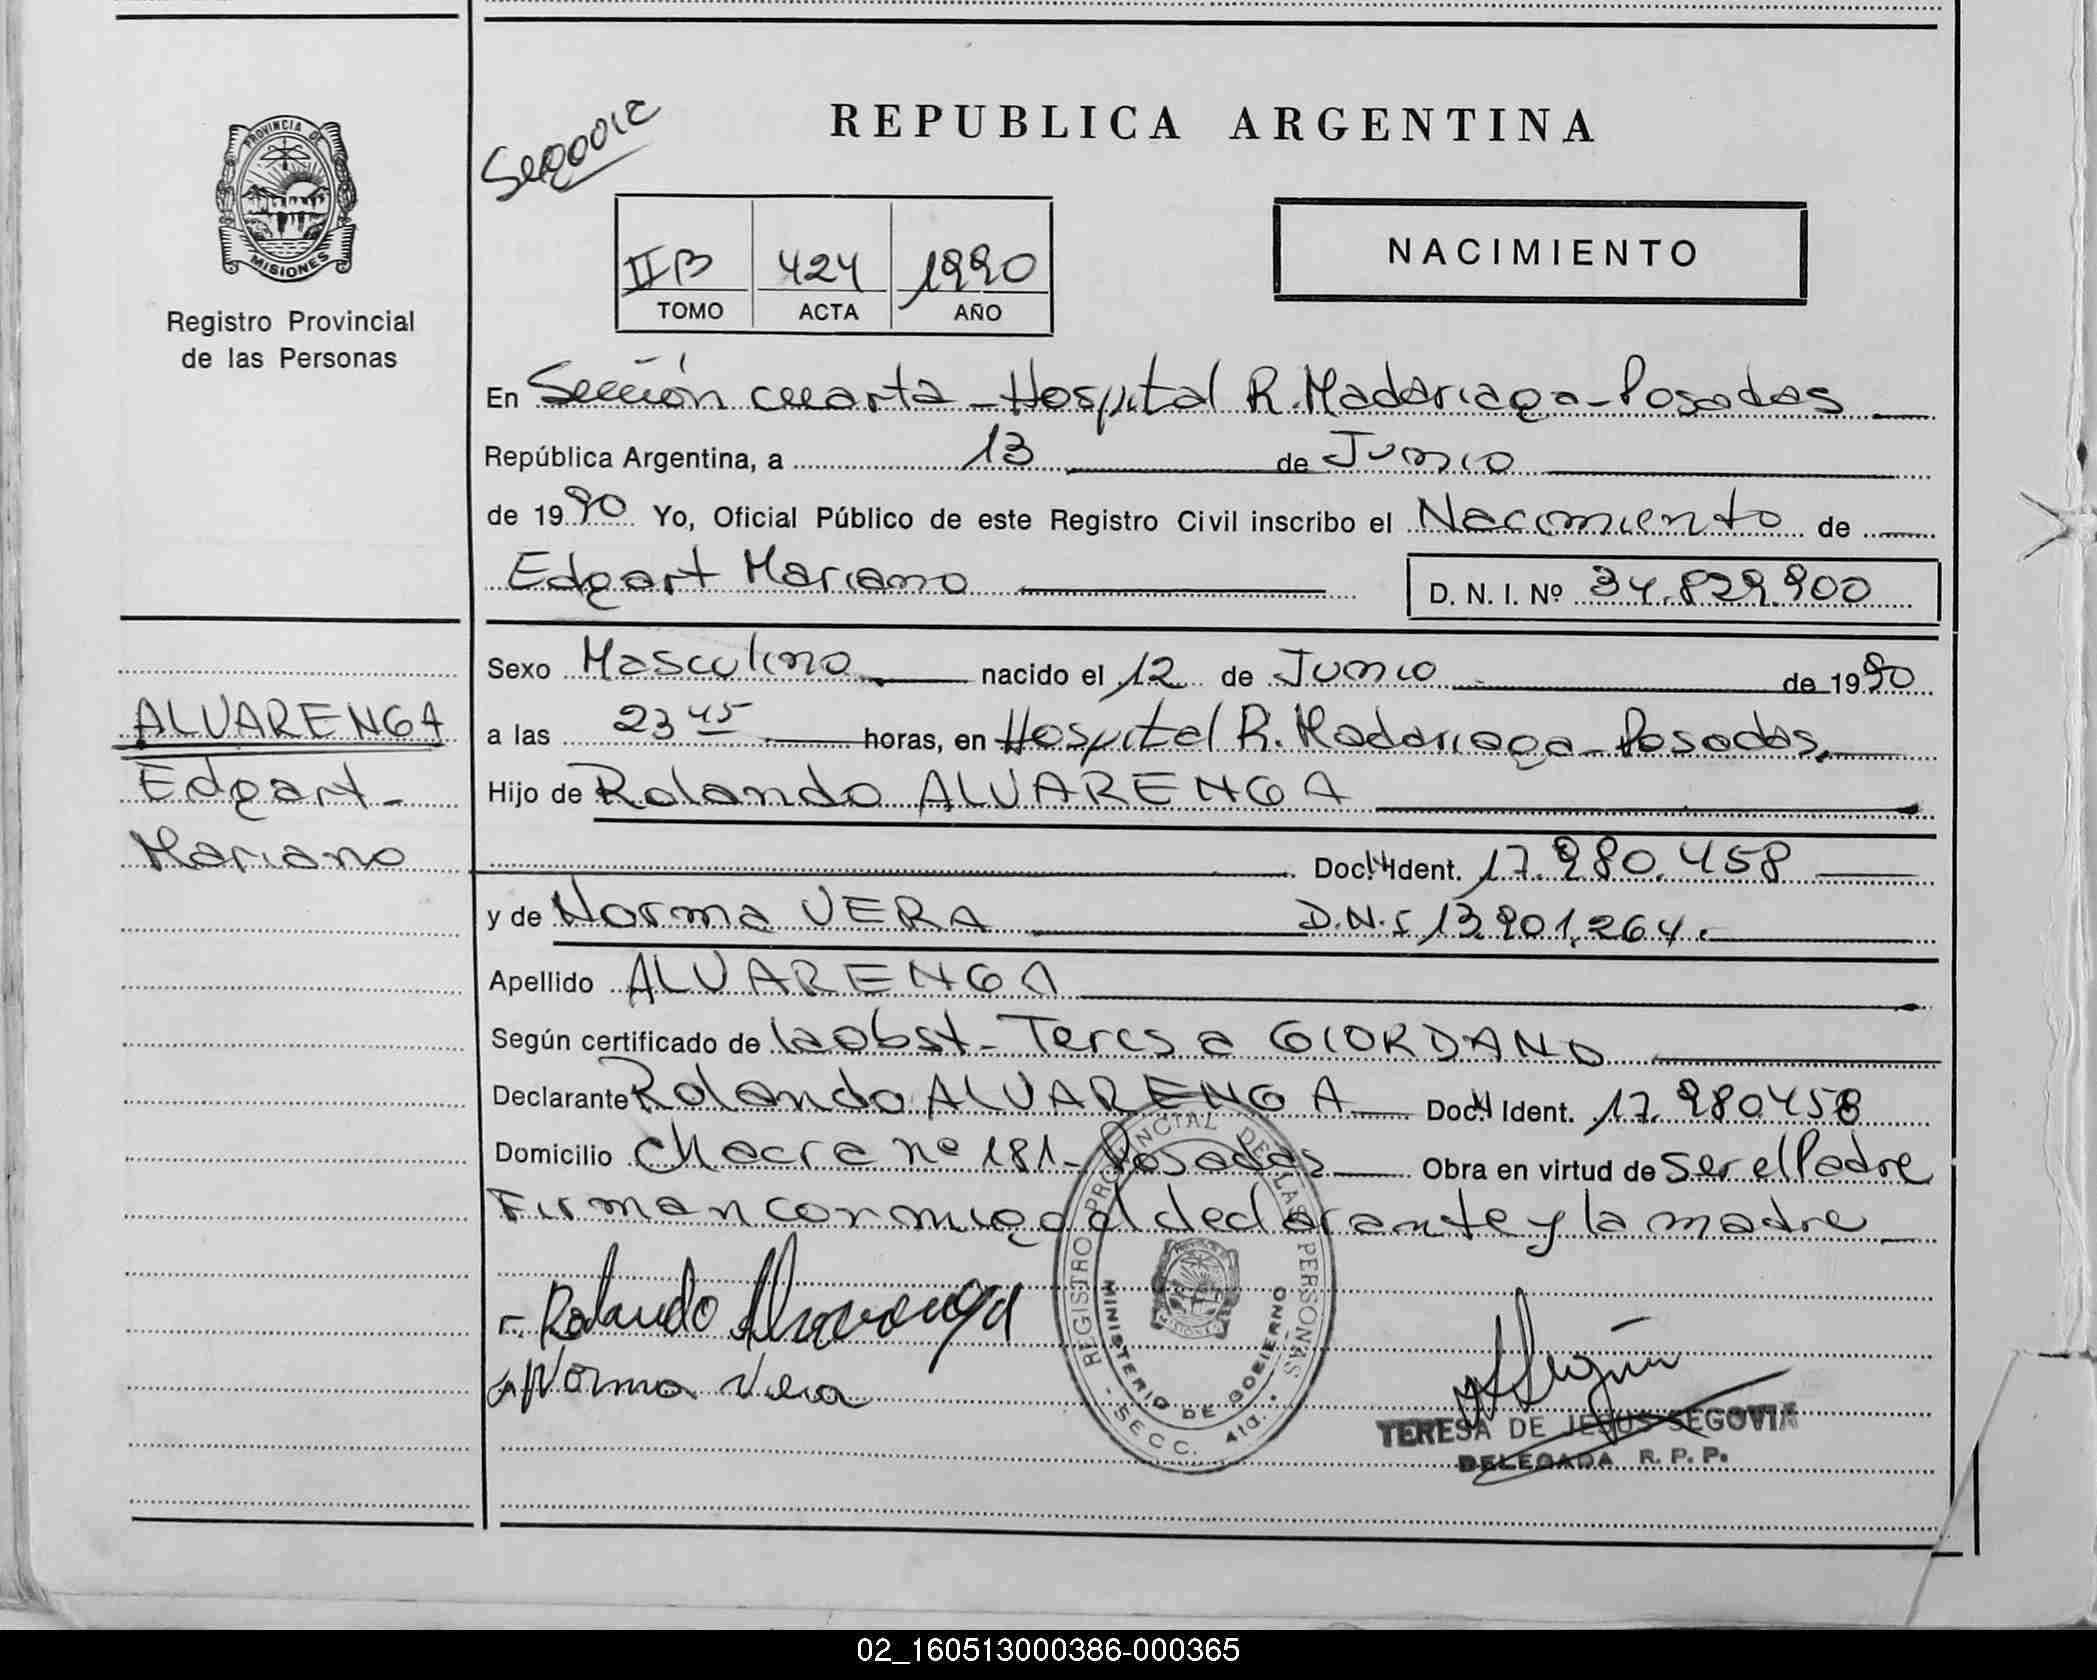 Segovia
REPUBLICA ARGENTINA
PROVINCIA DE
MISIONES
Registro Provincial
de las Personas
IIB 424 1990
TOMO ACTA AÑO
NACIMIENTO
En Sección cuarta - Hospital R. Madariaga - Posadas
República Argentina, a 13 de Junio
de 1990 Yo, Oficial Público de este Registro Civil inscribo el Nacimiento de
Edgart Mariano D. N. I. Nº 34.829.900
Sexo Masculino nacido el 12 de Junio de 1990
ALVARENGA
Edgart -
Mariano
a las 23 45 horas, en Hospital R. Madariaga - Posadas.
Hijo de Rolando ALVARENGA
Doc. Ident. 17.980.458
y de Norma VERA D.N.I 13.901.264.-
Apellido ALVARENGA
Según certificado de la obst - Teresa GIORDANO
Declarante Rolando ALVARENGA Doc. Ident. 17.980458
Domicilio Chacra nº 181 - Posadas Obra en virtud de Ser el Padre
Firman conmigo el declarante y la madre
Rolando Alvarenga
Norma Vera
REGISTRO PROVINCIAL DE LAS PERSONAS
MINISTERIO DE GOBIERNO
MISIONES
- SECC. 4ta. -
TERESA DE JESUS SEGOVIA
DELEGADA R. P. P.
02_160513000386-000365